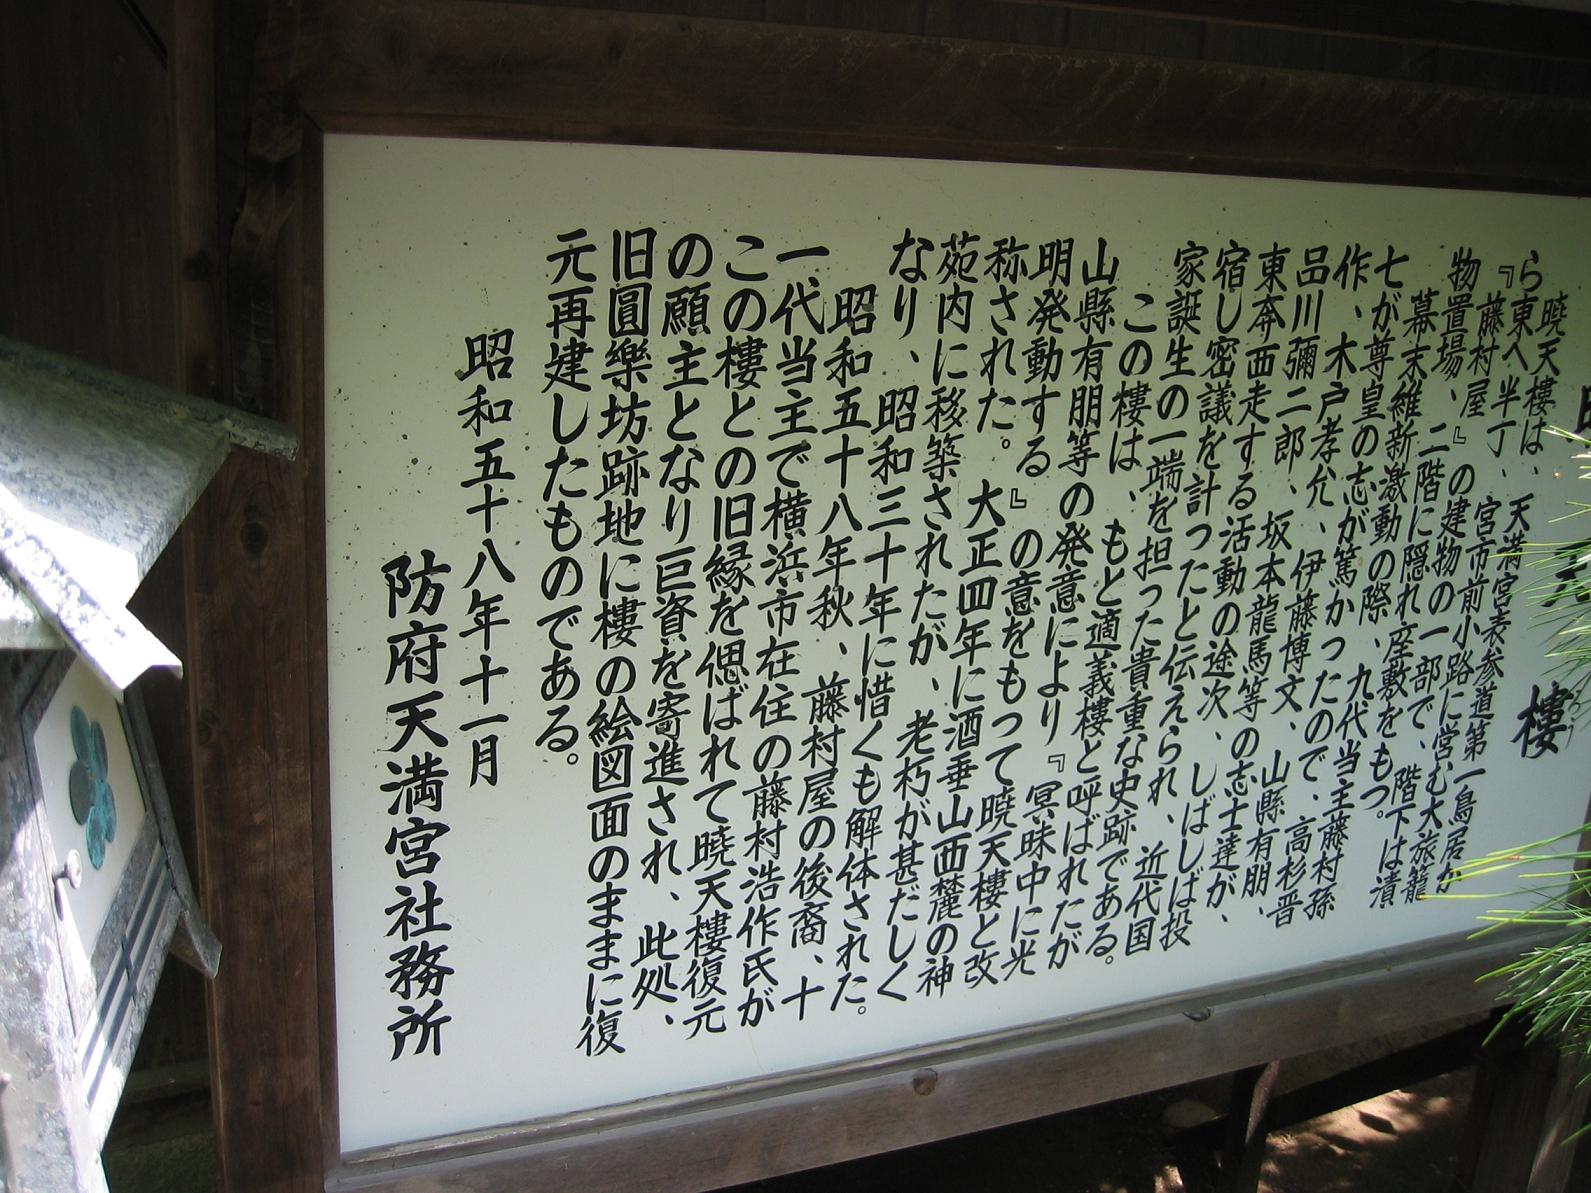 樓
暁天樓は、天満宮表参道第一鳥居か
ら東へ半丁、宮市前小路に営む大旅籠
『藤村屋』の建物の一部で、階下は漬
物置場、二階に隠れ座敷をもつ。
幕末維新激動の際、九代当主藤村孫
七が尊皇の志が篤かったので、高杉晋
作、木戸孝允、伊藤博文、山縣有朋、
品川彌二郎、坂本龍馬等の志士達が、
東奔西走する活動の途次、しばしば投
宿し密議を計ったと伝えられ、近代国
家誕生の一端を担った貴重な史跡である。
この樓は、もと適義樓と呼ばれたが
山縣有朋等の発意により『冥昧中に光
明発動する』の意をもって暁天樓と改
称された。大正四年に酒垂山西麓の神
苑内に移築されたが、老朽が甚だしく
なり、昭和三十年に惜くも解体された。
昭和五十八年秋、藤村屋の後裔、十
一代当主で横浜市在住の藤村浩作氏が
この樓との旧縁を偲ばれて暁天樓復元
の願主となり巨資を寄進され、此処、
旧圓樂坊跡地に樓の絵図面のままに復
元再建したものである。
昭和五十八年十一月
防府天満宮社務所